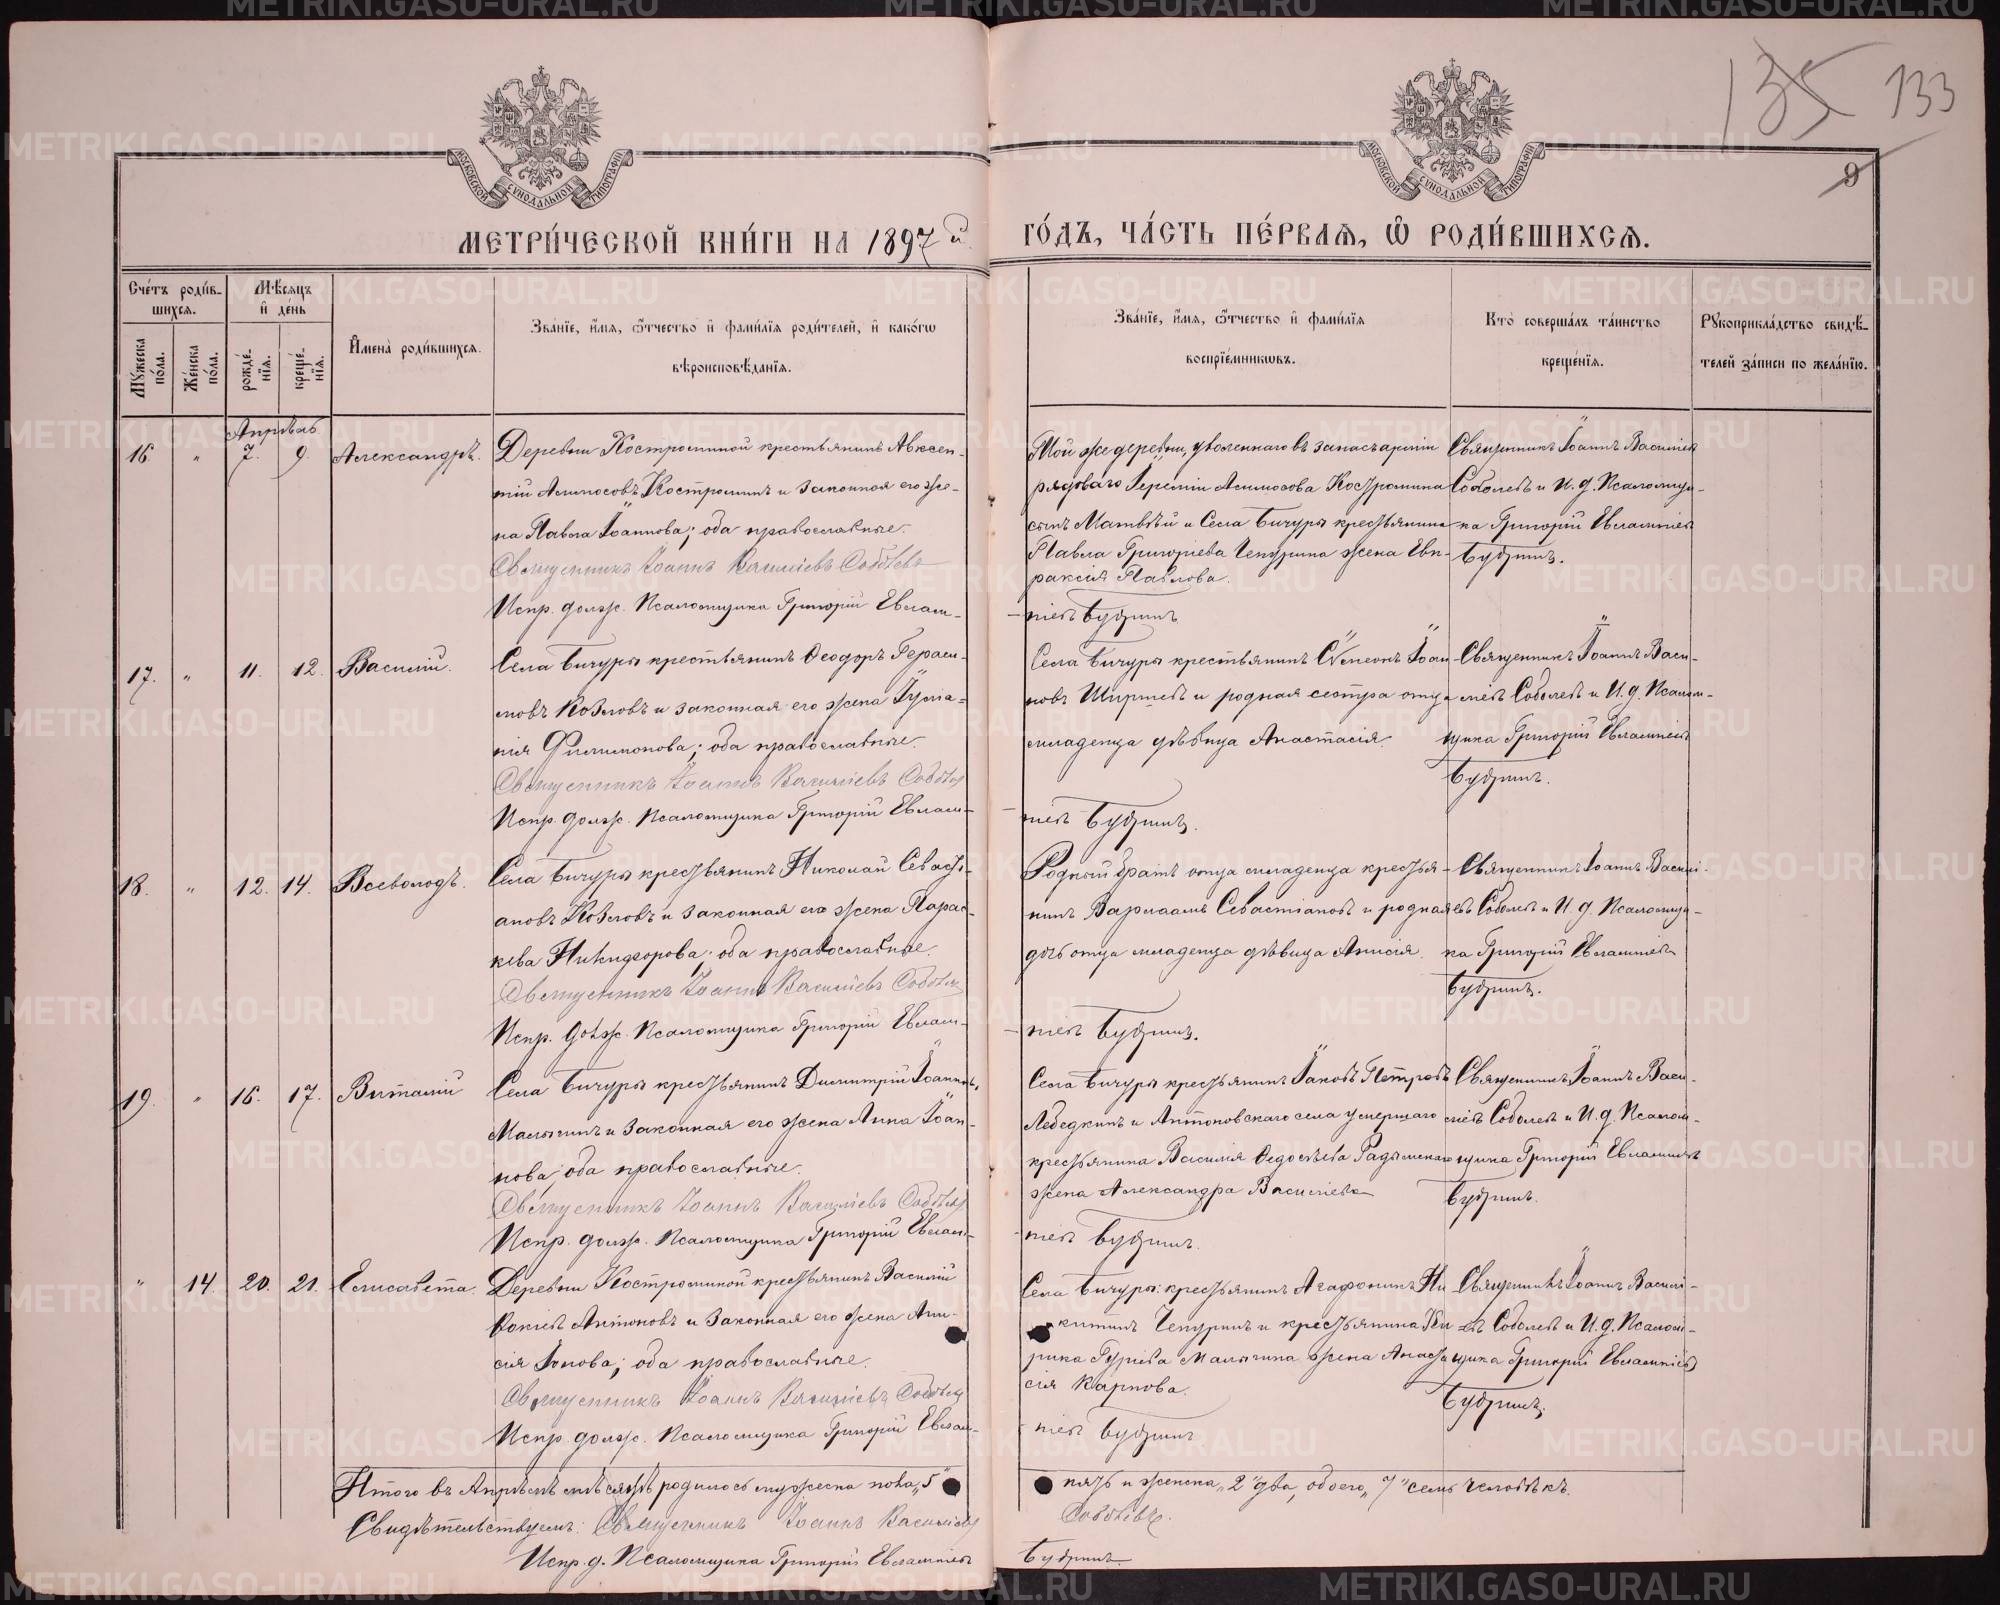 135 133
9
МОСКОВСКОЙ СѴНОДАЛЬНОЙ ТИПОГРАФІИ
МОСКОВСКОЙ СѴНОДАЛЬНОЙ ТИПОГРАФІИ
МЕТРИ́ЧЕСКОЙ КНИ́ГИ НА 1897й ГО́ДЪ, ЧА́СТЬ ПЕ́РВАѦ, Ѡ҆ РОДИ́ВШИХСѦ.
Сче́тъ роди́в-
шихсѧ.
Мꙋ́жеска по́ла.
Же́нска по́ла.
Мѣ́сѧцъ
и҆ де́нь
рожде́-
нїѧ.
креще́-
нїѧ.
И҆мена̀ роди́вшихсѧ.
Зва́нїе, и҆́мѧ, ѻ҆́тчество и҆ фами́лїѧ роди́телей, и҆ како́гѡ
вѣроисповѣ́данїѧ.
Зва́нїе, и҆́мѧ, ѻ҆́тчество и҆ фами́лїѧ
воспрїе́мникѡвъ.
Кто̀ соверша́лъ та́инство
креще́нїѧ.
Рꙋкоприкла́дство свидѣ́-
телей за́писи по жела́нїю.
Апрѣль
16. " 7. 9. Александръ.
Деревни Костроминой крестьянинъ Авксен-
тій Асимосовъ Костроминъ и законная его же-
на Павла Іоаннова; оба православные.
Священникъ Іоаннъ Василіевъ Соболевъ
Испр. долж. Псаломщика Григорій Евлам-
Той же деревни, уволеннаго въ запасъ арміи
рядоваго Іереміи Асимосова Костромина
сынъ Матвѣй и Села Бичуры крестьянина
Павла Григоріева Чепурина жена Евп-
раксія Павлова.
піевъ Будринъ
Священникъ Іоаннъ Василіев
Соболевъ и И. д. Псаломщи-
ка Григорій Евлампіев
Будринъ.
17. " 11. 12. Василій.
Села Бичуры крестьянинъ Ѳеодоръ Гераси-
мовъ Козловъ и законная его жена Іуліа-
нія Филимонова; оба православные.
Священникъ Іоаннъ Василіевъ Соболев
Испр. долж. Псаломщика Григорій Евлам-
Села Бичуры крестьянинъ Сѵмеонъ Іоан-
новъ Ширшевъ и родная сестра отца
младенца дѣвица Анастасія.
піевъ Будринъ.
Священникъ Іоаннъ Васи-
ліевъ Соболевъ и И. д. Псалом-
щика Григорій Евлампіевъ
Будринъ.
18. " 12. 14. Всеволодъ.
Села Бичуры крестьянинъ Николай Севасті-
ановъ Козловъ и законная его жена Парас-
кева Никифорова; оба православные.
Священникъ Іоаннъ Василіевъ Соболев
Испр. долж. Псаломщика Григорій Евлам-
Родный братъ отца младенца крестья-
нинъ Варлаамъ Севастіановъ и родная
дочь отца младенца дѣвица Анисія.
піевъ Будринъ.
Священникъ Іоаннъ Василі-
евъ Соболевъ и И. д. Псаломщи-
ка Григорій Евлампіевъ
Будринъ.
19. " 16. 17. Виталій
Села Бичуры крестьянинъ Димитрій Іоанновъ
Малыгинъ и законная его жена Анна Іоан-
нова; оба православные.
Священникъ Іоаннъ Василіевъ Соболев
Испр. долж. Псаломщика Григорій Евлам-
Села Бичуры крестьянинъ Іаковъ Петровъ
Лебедкинъ и Антоновскаго села умершаго
крестьянина Василія Ѳедосѣева
жена Александра Василіева
піевъ Будринъ.
Священникъ Іоаннъ Васи-
ліевъ Соболевъ и И. д. Псалом-
щика Григорій Евлампіевъ
Будринъ.
" 14. 20. 21. Елисавета.
Деревни Костроминой крестьянинъ Василій
Антоновъ и законная его жена Ани-
сія Іонова; оба православные.
Священникъ Іоаннъ Василіевъ Соболев
Испр. долж. Псаломщика Григорій Евлам-
Села Бичуры крестьянинъ Агафоникъ Ни-
китинъ Чепуринъ и крестьянина Ки-
рика Гуріева Малыгина жена Анаста-
сія Карпова.
піевъ Будринъ
Священникъ Іоаннъ Василі-
евъ Соболевъ и И. д. Псалом-
щика Григорій Евлампіевъ
Будринъ.
Итого въ Апрѣлѣ мѣсяцѣ родилось мужеска пола „5" пять и женска „2" два, обоего „7" семь человѣкъ.
Свидѣтельствуемъ: Священникъ Іоаннъ Василіевъ Соболевъ.
Испр. д. Псаломщика Григорій Евлампіевъ Будринъ
METRIKI.GASO-URAL.RU